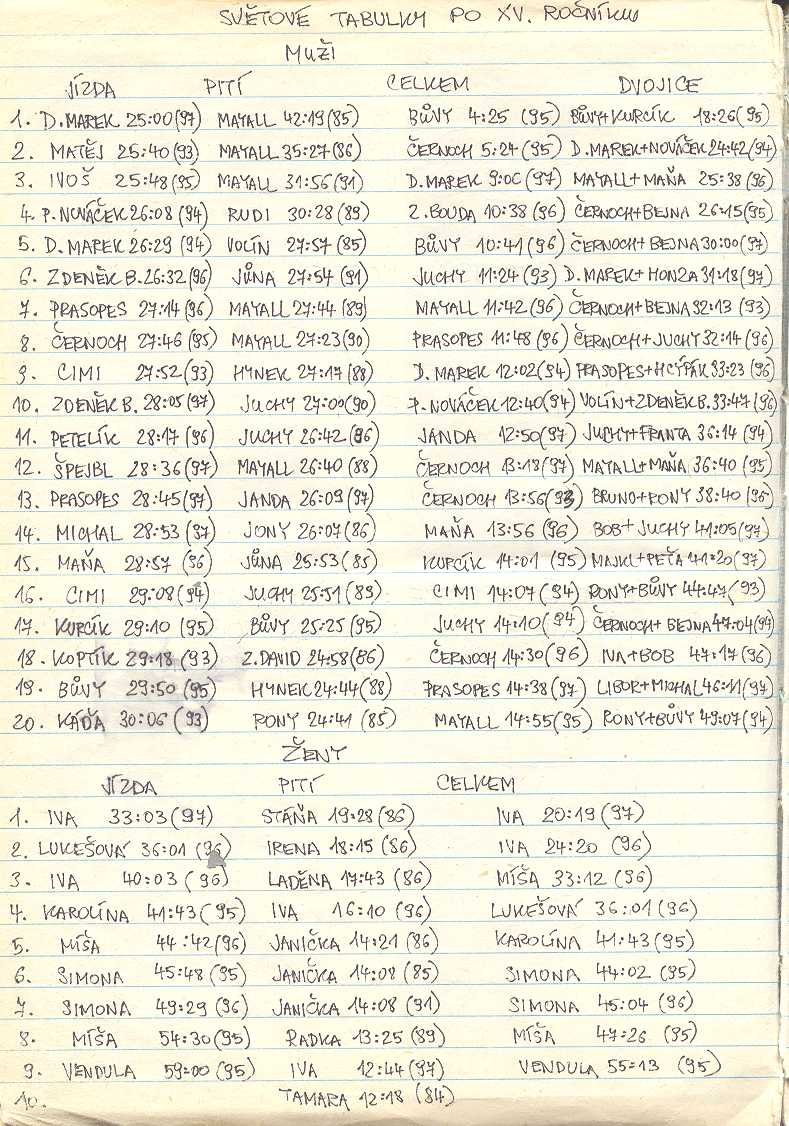 SVĚTOVÉ TABULKY PO XV. ROČNÍKU
MUŽI
JÍZDA PITÍ CELKEM DVOJICE
1. D. MAREK 25:00 (97) MAYALL 42:19 (85) BŮVY 4:25 (95) BŮVY+KURCÍK 18:26 (95)
2. MATĚJ 25:40 (93) MAYALL 35:27 (86) ČERNOCH 5:24 (95) D. MAREK+NOVÁČEK 24:42 (94)
3. IVOŠ 25:48 (95) MAYALL 31:56 (91) D. MAREK 9:00 (97) MAYALL+MAŇA 25:38 (96)
4. P. NOVÁČEK 26:08 (94) RUDI 30:28 (89) Z. BOUDA 10:38 (96) ČERNOCH+BEJNA 26:15 (95)
5. D. MAREK 26:29 (94) VOLÍN 27:57 (85) BŮVY 10:41 (96) ČERNOCH+BEJNA 30:00 (97)
6. ZDENĚK B. 26:32 (96) JŮNA 27:54 (91) JUCHY 11:24 (93) D. MAREK+HONZA 31:18 (97)
7. PRASOPES 27:14 (96) MAYALL 27:44 (89) MAYALL 11:42 (96) ČERNOCH+BEJNA 32:13 (93)
8. ČERNOCH 27:46 (95) MAYALL 27:23 (90) PRASOPES 11:48 (96) ČERNOCH+JUCHY 32:14 (96)
9. CIMI 27:52 (93) HYNEK 27:17 (88) D. MAREK 12:02 (94) PRASOPES+HCÝPÁK 33:23 (96)
10. ZDENĚK B. 28:05 (97) JUCHY 27:00 (90) P. NOVÁČEK 12:40 (94) VOLÍN+ZDENĚK B. 33:47 (96)
11. PETELÍK 28:17 (96) JUCHY 26:42 (86) JANDA 12:50 (97) JUCHY+FRANTA 36:14 (94)
12. ŠPEJBL 28:36 (97) MAYALL 26:40 (88) ČERNOCH 13:18 (97) MAYALL+MAŇA 36:40 (95)
13. PRASOPES 28:45 (97) JANDA 26:09 (97) ČERNOCH 13:56 (93) BRUNO+RONY 38:40 (95)
14. MICHAL 28:53 (97) JONY 26:07 (86) MAŇA 13:56 (96) BOB+JUCHY 41:05 (97)
15. MAŇA 28:57 (96) JŮNA 25:53 (85) KURCÍK 14:01 (95) MAJKL+PEŤA 41:20 (97)
16. CIMI 29:08 (94) JUCHY 25:51 (89) CIMI 14:07 (94) RONY+BŮVY 44:47 (93)
17. KURCÍK 29:10 (95) BŮVY 25:25 (95) JUCHY 14:10 (94) ČERNOCH+BEJNA 47:04 (94)
18. KOPTÍK 29:18 (93) Z. DAVID 24:58 (86) ČERNOCH 14:30 (96) IVA+BOB 47:17 (96)
19. BŮVY 29:50 (95) HYNEK 24:44 (88) PRASOPES 14:38 (97) LIBOR+MICHAL 46:11 (97)
20. KÁĎA 30:06 (93) RONY 24:41 (85) MAYALL 14:55 (95) RONY+BŮVY 49:07 (94)
ŽENY
JÍZDA PITÍ CELKEM
1. IVA 33:03 (97) STÁŇA 19:28 (86) IVA 20:19 (97)
2. LUKEŠOVÁ 36:01 (96) IRENA 18:15 (86) IVA 24:20 (96)
3. IVA 40:03 (96) LADĚNA 17:43 (86) MÍŠA 33:12 (96)
4. KAROLÍNA 41:43 (95) IVA 16:10 (96) LUKEŠOVÁ 36:01 (96)
5. MÍŠA 44:42 (96) JANIČKA 14:21 (86) KAROLÍNA 41:43 (95)
6. SIMONA 45:48 (95) JANIČKA 14:08 (85) SIMONA 44:02 (95)
7. SIMONA 49:29 (96) JANIČKA 14:08 (91) SIMONA 45:04 (96)
8. MÍŠA 54:30 (95) RADKA 13:25 (89) MÍŠA 47:26 (95)
9. VENDULA 59:00 (95) IVA 12:44 (97) VENDULA 55:13 (95)
10. TAMARA 12:18 (84)